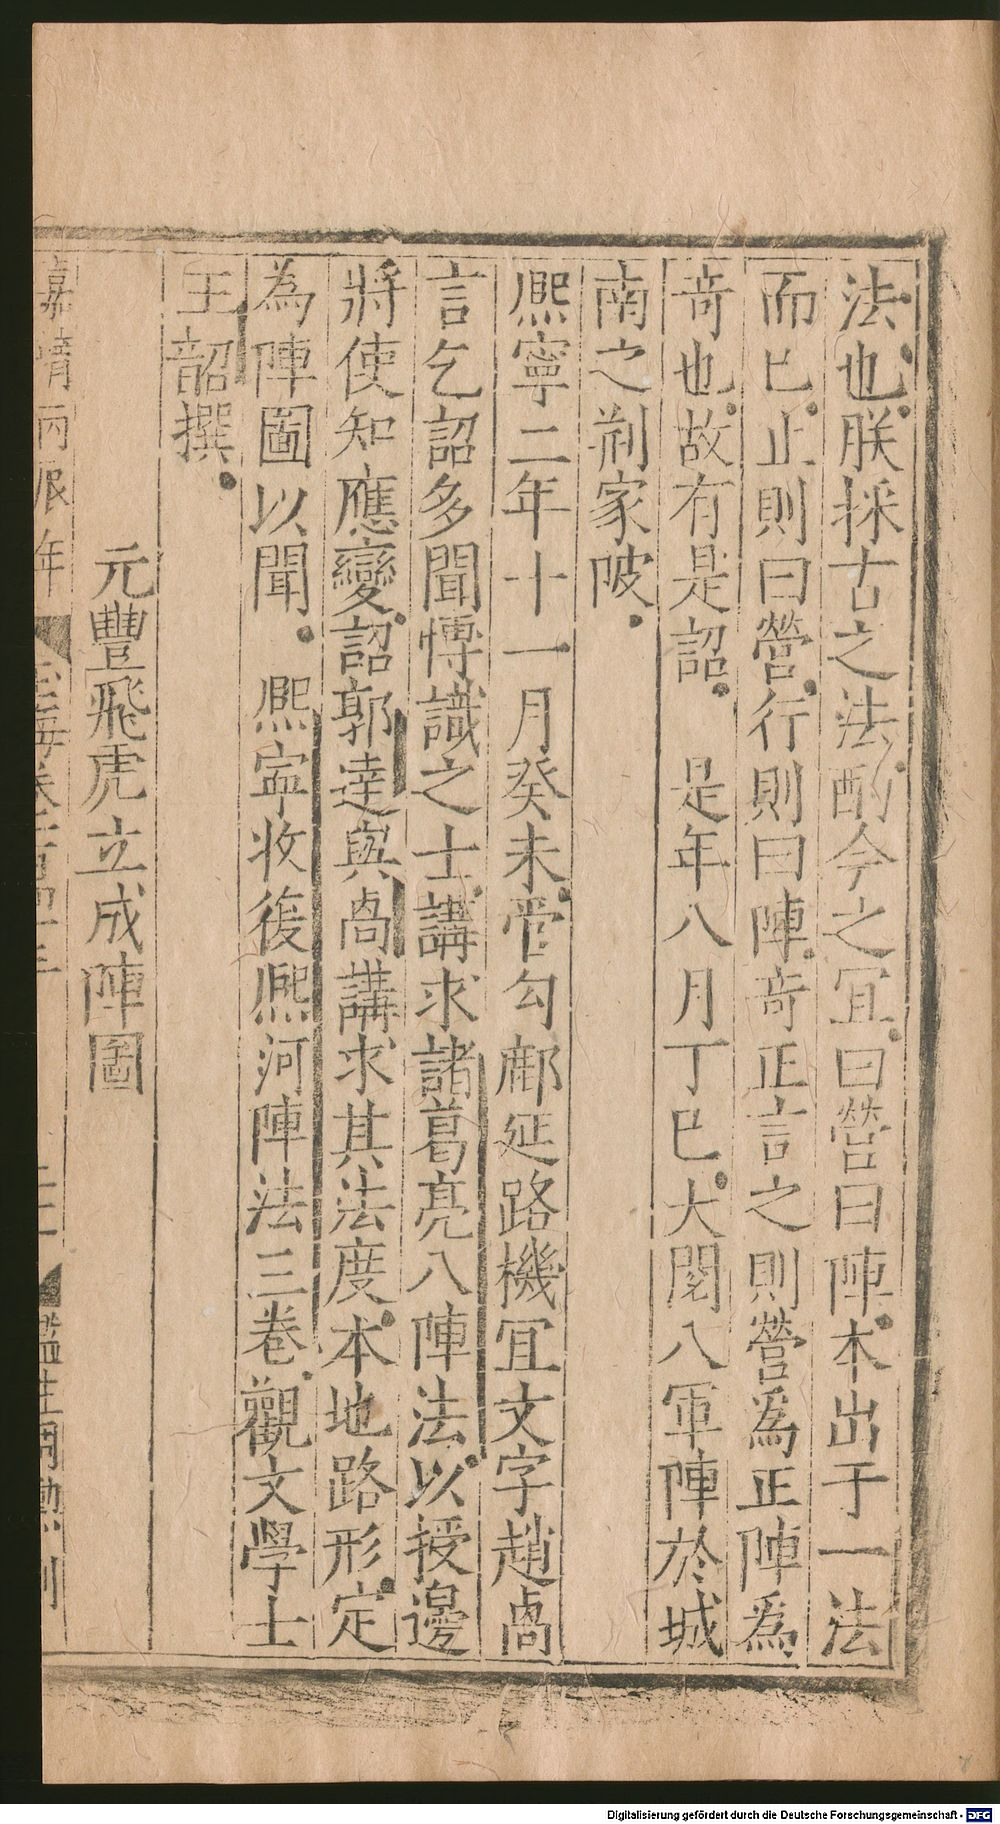 法也朕採古之法酌今之冝曰營曰陣本出于一法
而已止則曰營行則曰陣竒正言之則營爲正陣爲
竒也故有是詔　是年八月丁巳大閱八軍陣於城
南之荆家陂
熈寧二年十一月癸未管勾鄜延路機冝文字趙卨
言乞詔多聞博識之士講求諸葛亮八陣法以授邊
將使知應變詔郭逵與卨講求其法度本地路形定
為陣圖以聞　熈寧收復熈河陣法三卷觀文學士
王韶撰
元豐飛虎立成陣圖
嘉靖丙辰年
玉海卷一百四十三
二十二
監生周
刊
Digitalisierung gefördert durch die Deutsche Forschungsgemeinschaft - DFG